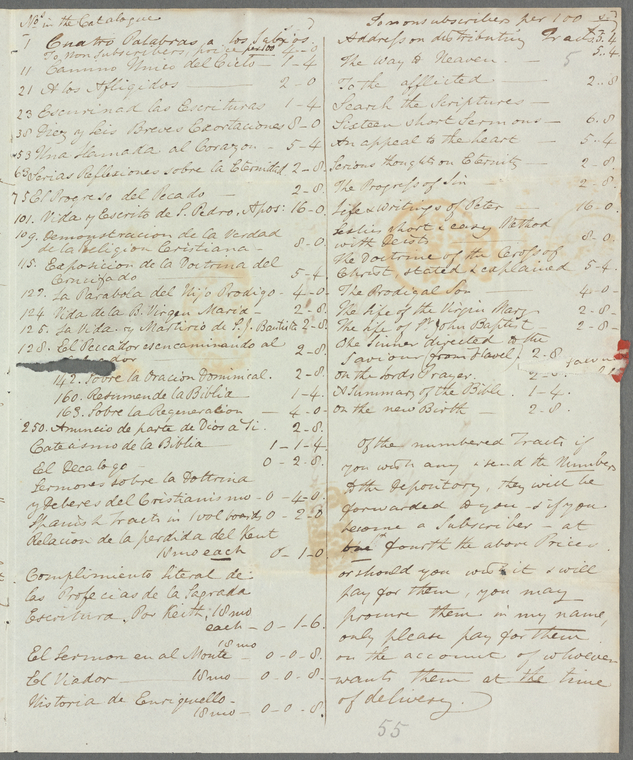 No. in the Catalogue
7 Cuatro Palabras a los Subios
To non subscribers, price per 100 4-0
11 Camino Unico del Cielo - 1-4
21 A los Afligidos - 2-0
23 Escurinad las Escrituras 1-4
38 Diez y Seis Breves Exortaciones 8-0
53 Una Llamada al Corazon - 5-4
63 Serias Reflexiones sobre la Eternitad 2-8
75 El Progreso del Pecado - 2-8.
101. Vida y Escrito de S. Pedro, Apos: 16-0.
109. Demonstracion de la Verdad
de la Religion Cristiana - 8-0.
115. Exposicion de la Doctrina del
Crucifado 5-4
122. La Parabola del Hijo Prodigo - 4-0
124 Vida de la B. Virgen Maria - 2-8.
125. La Vida y Martirio de S. J. Bautista 2-8.
128. El Peccador es encaminando al
2-8
142. Sobre la Oracion Dominical. 2-8
160. Resumen de la Biblia 1-4.
163. Sobre la Regeneration - 4-0.
250. Anuncio de parte de Dios a Ti. 2-8.
Catecismo de la Biblia - 1-1-4.
El Decalogo - 0-2-8.
Sermones sobre la Dottrina
y Deberes del Cristianismo - 0-4-0.
Spanish Tracts in 1 vol boards 0-2-0
Relacion de la perdida del Kent
18mo each 0-1-0
Complimiento literal de
las Profecias de la Sagrada
Escritura, Por Keith, 18mo
each - 0-1-6.
18mo
El Sermon en al Monte - 0-0-8.
El Viador - 18mo - 0-0-8.
Historia de Enriquello -
18mo - 0-0-8.
To non subscribers per 100
Address on distributing Tracts 5.4
The Way to Heaven. - 5-4.
To the afflicted - 2-8
Search the Scriptures -
Sixteen short Sermons - 6-8
An appeal to the heart - 5-4
Serious thoughts on Eternity - 2-8
The Progress of Sin - 2-8.
Life & Writings of Peter - 16-0.
Leslies short & easy Method
with Deists 8-0.
The Doctrine of the Cross of
Christ stated & explained 5-4.
The Prodigal Son - 4-0.
The life of the Virgin Mary - 2-8-
The life of St. John Baptist 2-8-
The Sinner directed to the
Saviour (from Flavel) 2-8
on the Lords Prayer. 2-8.
A Summary of the Bible. 1-4.
on the new Birth - 2-8.
Of the numbered Tracts if
you wish any & send the Numbers
to the depository, they will be
forwarded to you & if you
become a Subscriber - at
one fourth the above Prices
or should you wish it & will
pay for them you may
procure them in my name,
only please pay for them
on the account of whoever
wants them at the time
of delivery.
55